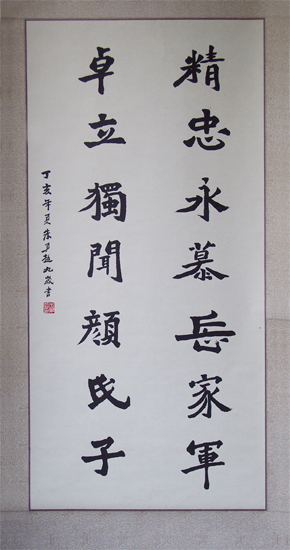 精忠永慕岳家軍
卓立獨聞顏氏子
丁亥年夏
書